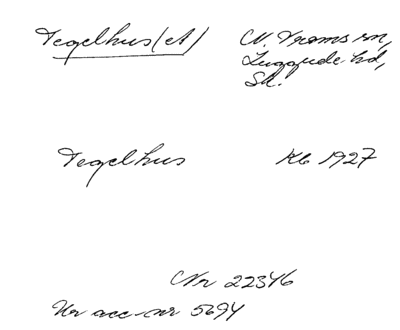 Tegelhus(et) N. Vrams sn,
Luggude hd,
Sk.
Tegelhus Kb 1927
Nr 22346
Ur acc-nr 5694